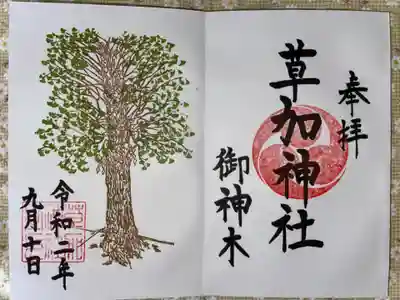 奉拝
草加神社
御神木
令和二年
九月十日